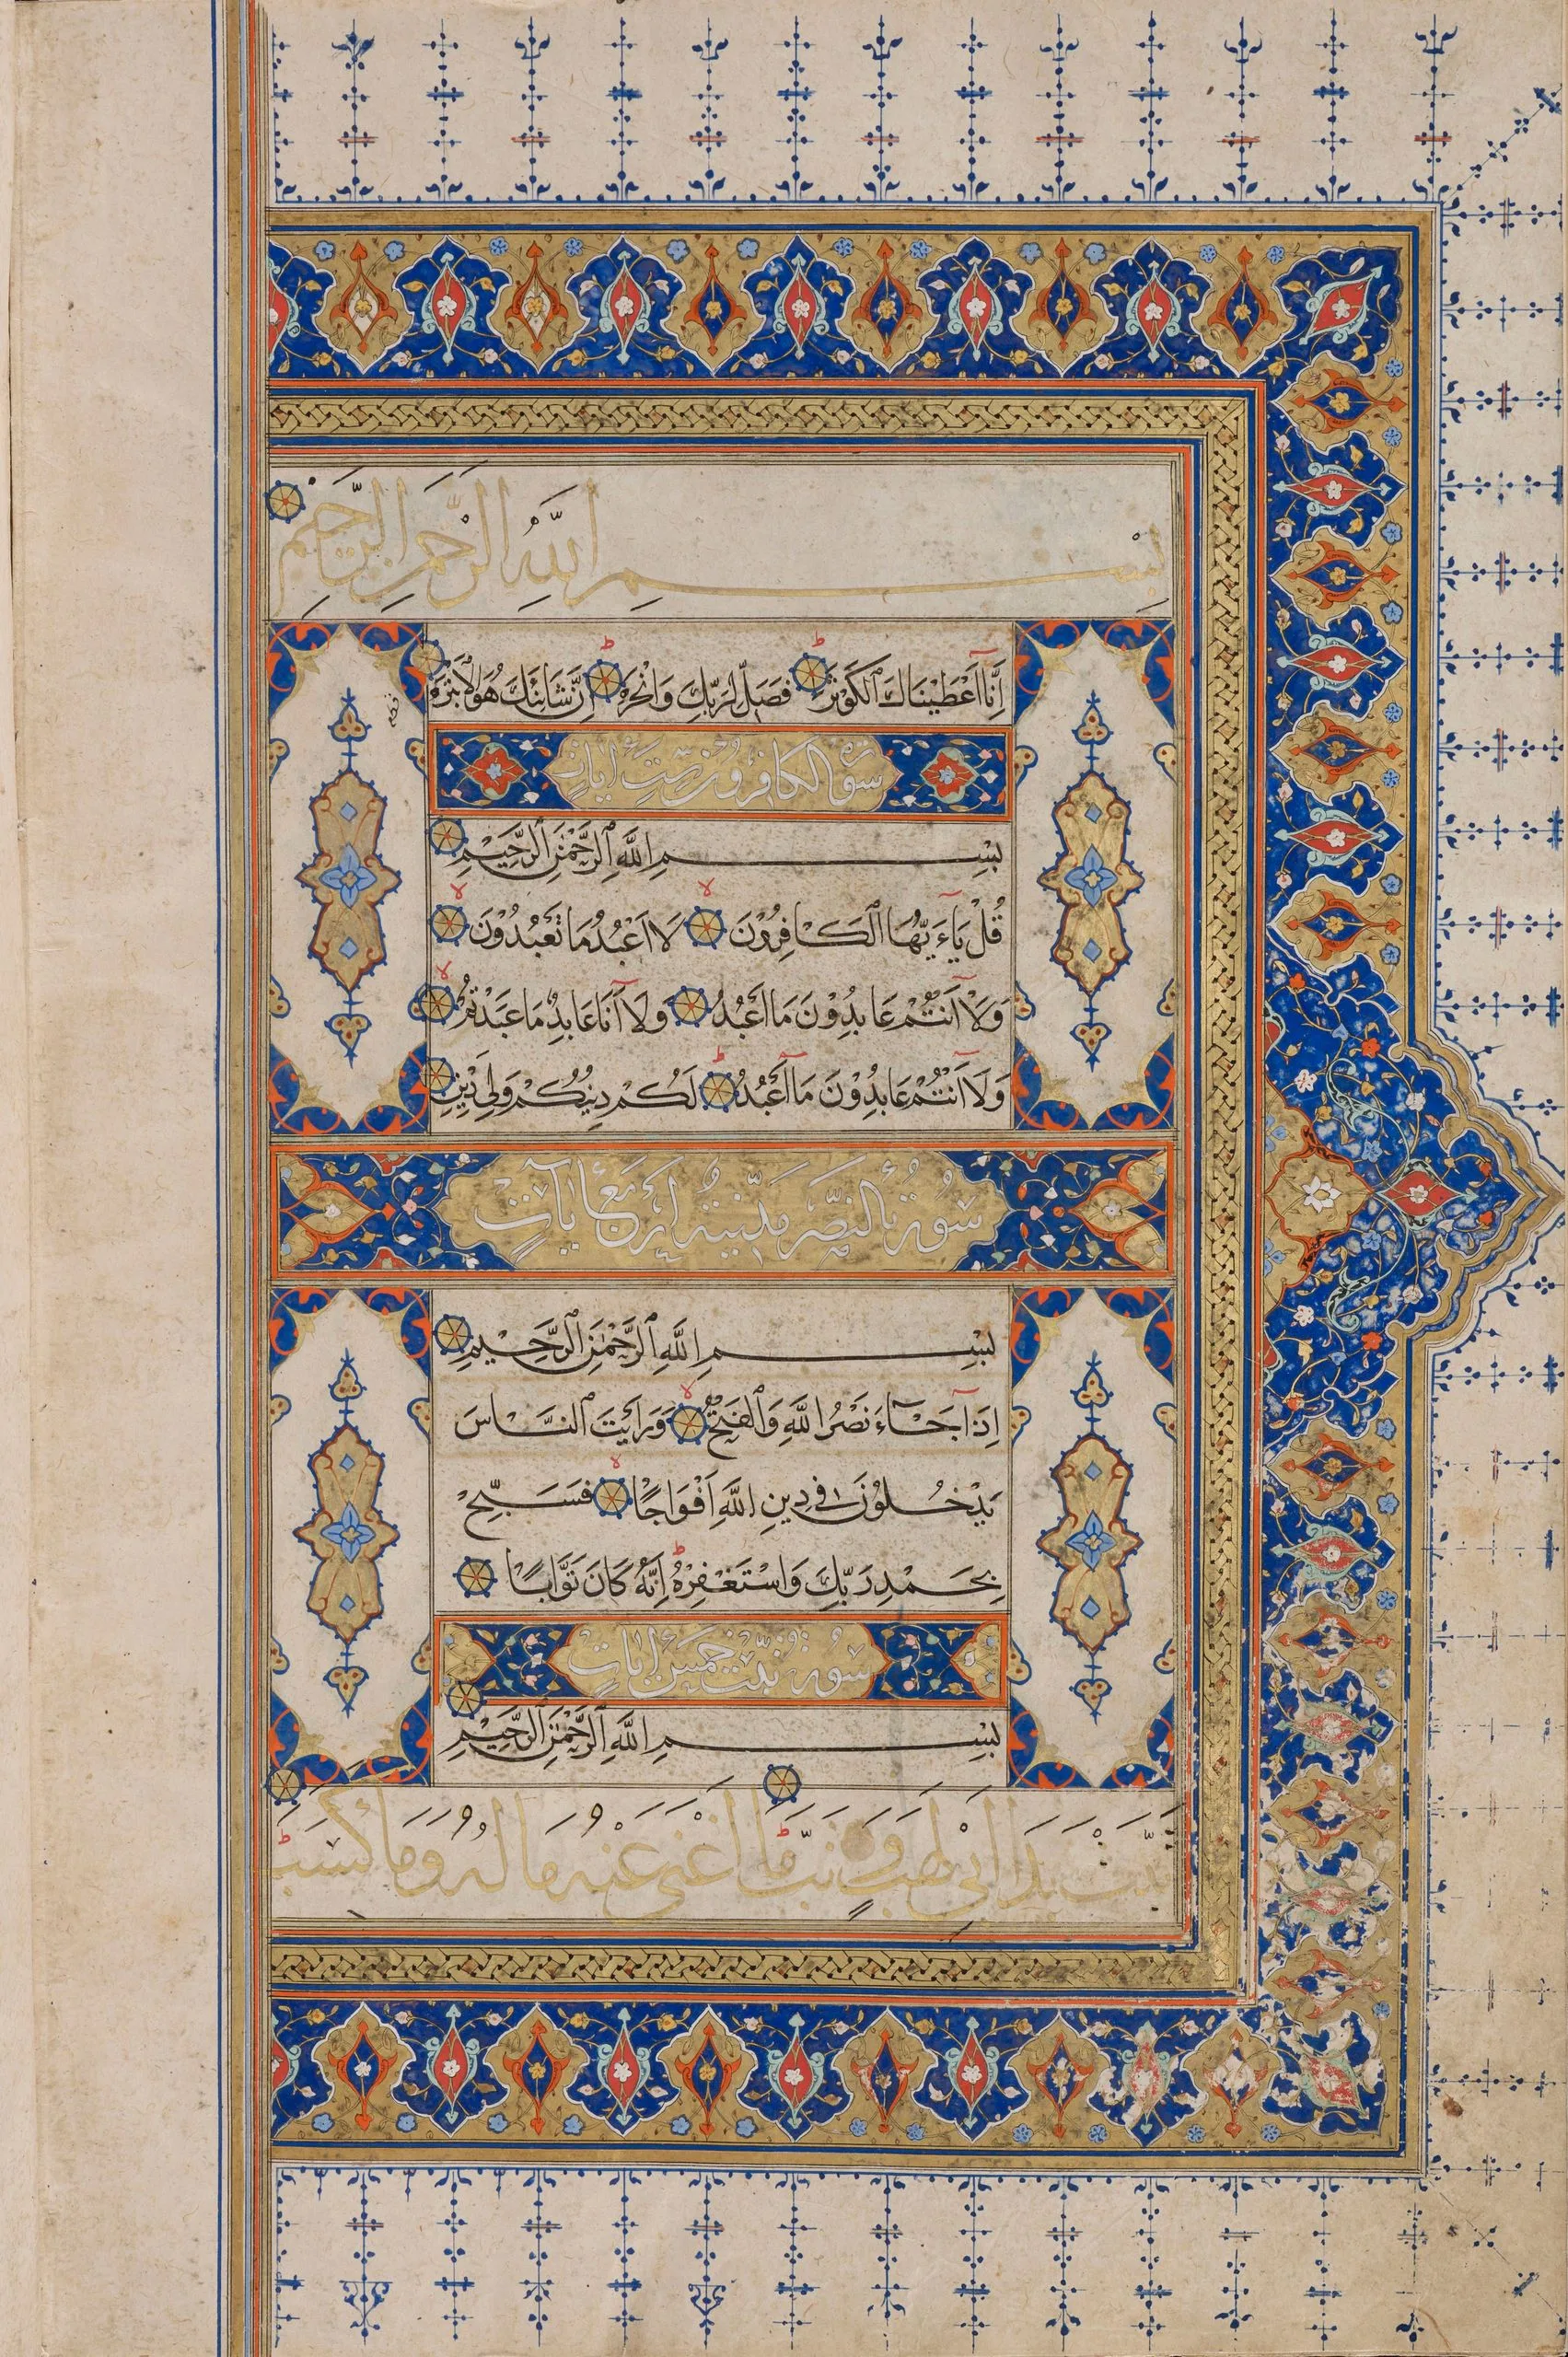 بسم الله الرحمن الرحيم
اِنَّا اَعْطَيْنَاكَ ٱلْكَوْثَرَ فَصَلِّ لِرَبِّكَ وَانْحَرْ اِنَّ شَانِئَكَ هُوَ الْاَبْتَرُ
سورة الكافرون ست ايات
بِسْمِ اللَّهِ ٱلرَّحْمٰنِ ٱلرَّحِيْمِ
قُلْ يَآءَيُّهَا ٱلْكَافِرُوْنَ لَا اَعْبُدُ مَا تَعْبُدُوْنَ
وَلَآ اَنْتُمْ عَابِدُوْنَ مَآ اَعْبُدُ وَلَآ اَنَا عَابِدٌ مَا عَبَدْتُمْ
وَلَآ اَنْتُمْ عَابِدُوْنَ مَآ اَعْبُدُ لَكُمْ دِيْنُكُمْ وَلِيَ دِيْنِ
سورة النصر مدنية اربع ايات
بِسْمِ اللَّهِ ٱلرَّحْمٰنِ ٱلرَّحِيْمِ
اِذَا جَآءَ نَصْرُ اللَّهِ وَٱلْفَتْحُ وَرَاَيْتَ ٱلنَّاسَ
يَدْخُلُوْنَ فِي دِينِ اللَّهِ اَفْوَاجًا فَسَبِّحْ
بِحَمْدِ رَبِّكَ وَاسْتَغْفِرْهُ اِنَّهُ كَانَ تَوَّابًا
سورة تبت خمس ايات
بِسْمِ اللَّهِ ٱلرَّحْمٰنِ ٱلرَّحِيْمِ
تبت يدا ابي لهب وتب ما اغنى عنه ماله وما كسب